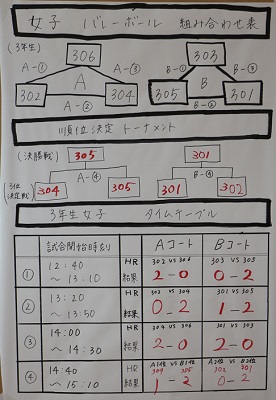 女子 バレーボール 組み合わせ表
(3年生)
306
303
A-① A-③
B-① B-③
A
B
302 304
305 301
A-②
B-②
順位決定 トーナメント
(決勝戦)
305
301
3位決定戦
A-④
B-④
304 305
301 302
3年生女子 タイムテーブル
試合開始時刻 HR 結果 Aコート Bコート
① 12:40 ～ 13:10
HR 302 VS 306 303 VS 305
結果 2-0 0-2
② 13:20 ～ 13:50
HR 302 VS 304 301 VS 305
結果 0-2 1-2
③ 14:00 ～ 14:30
HR 304 VS 306 301 VS 303
結果 2-0 2-0
④ 14:40 ～ 15:10
HR A1位 VS B1位 A2位 VS B2位
304 305 302 301
結果 1-2 0-2